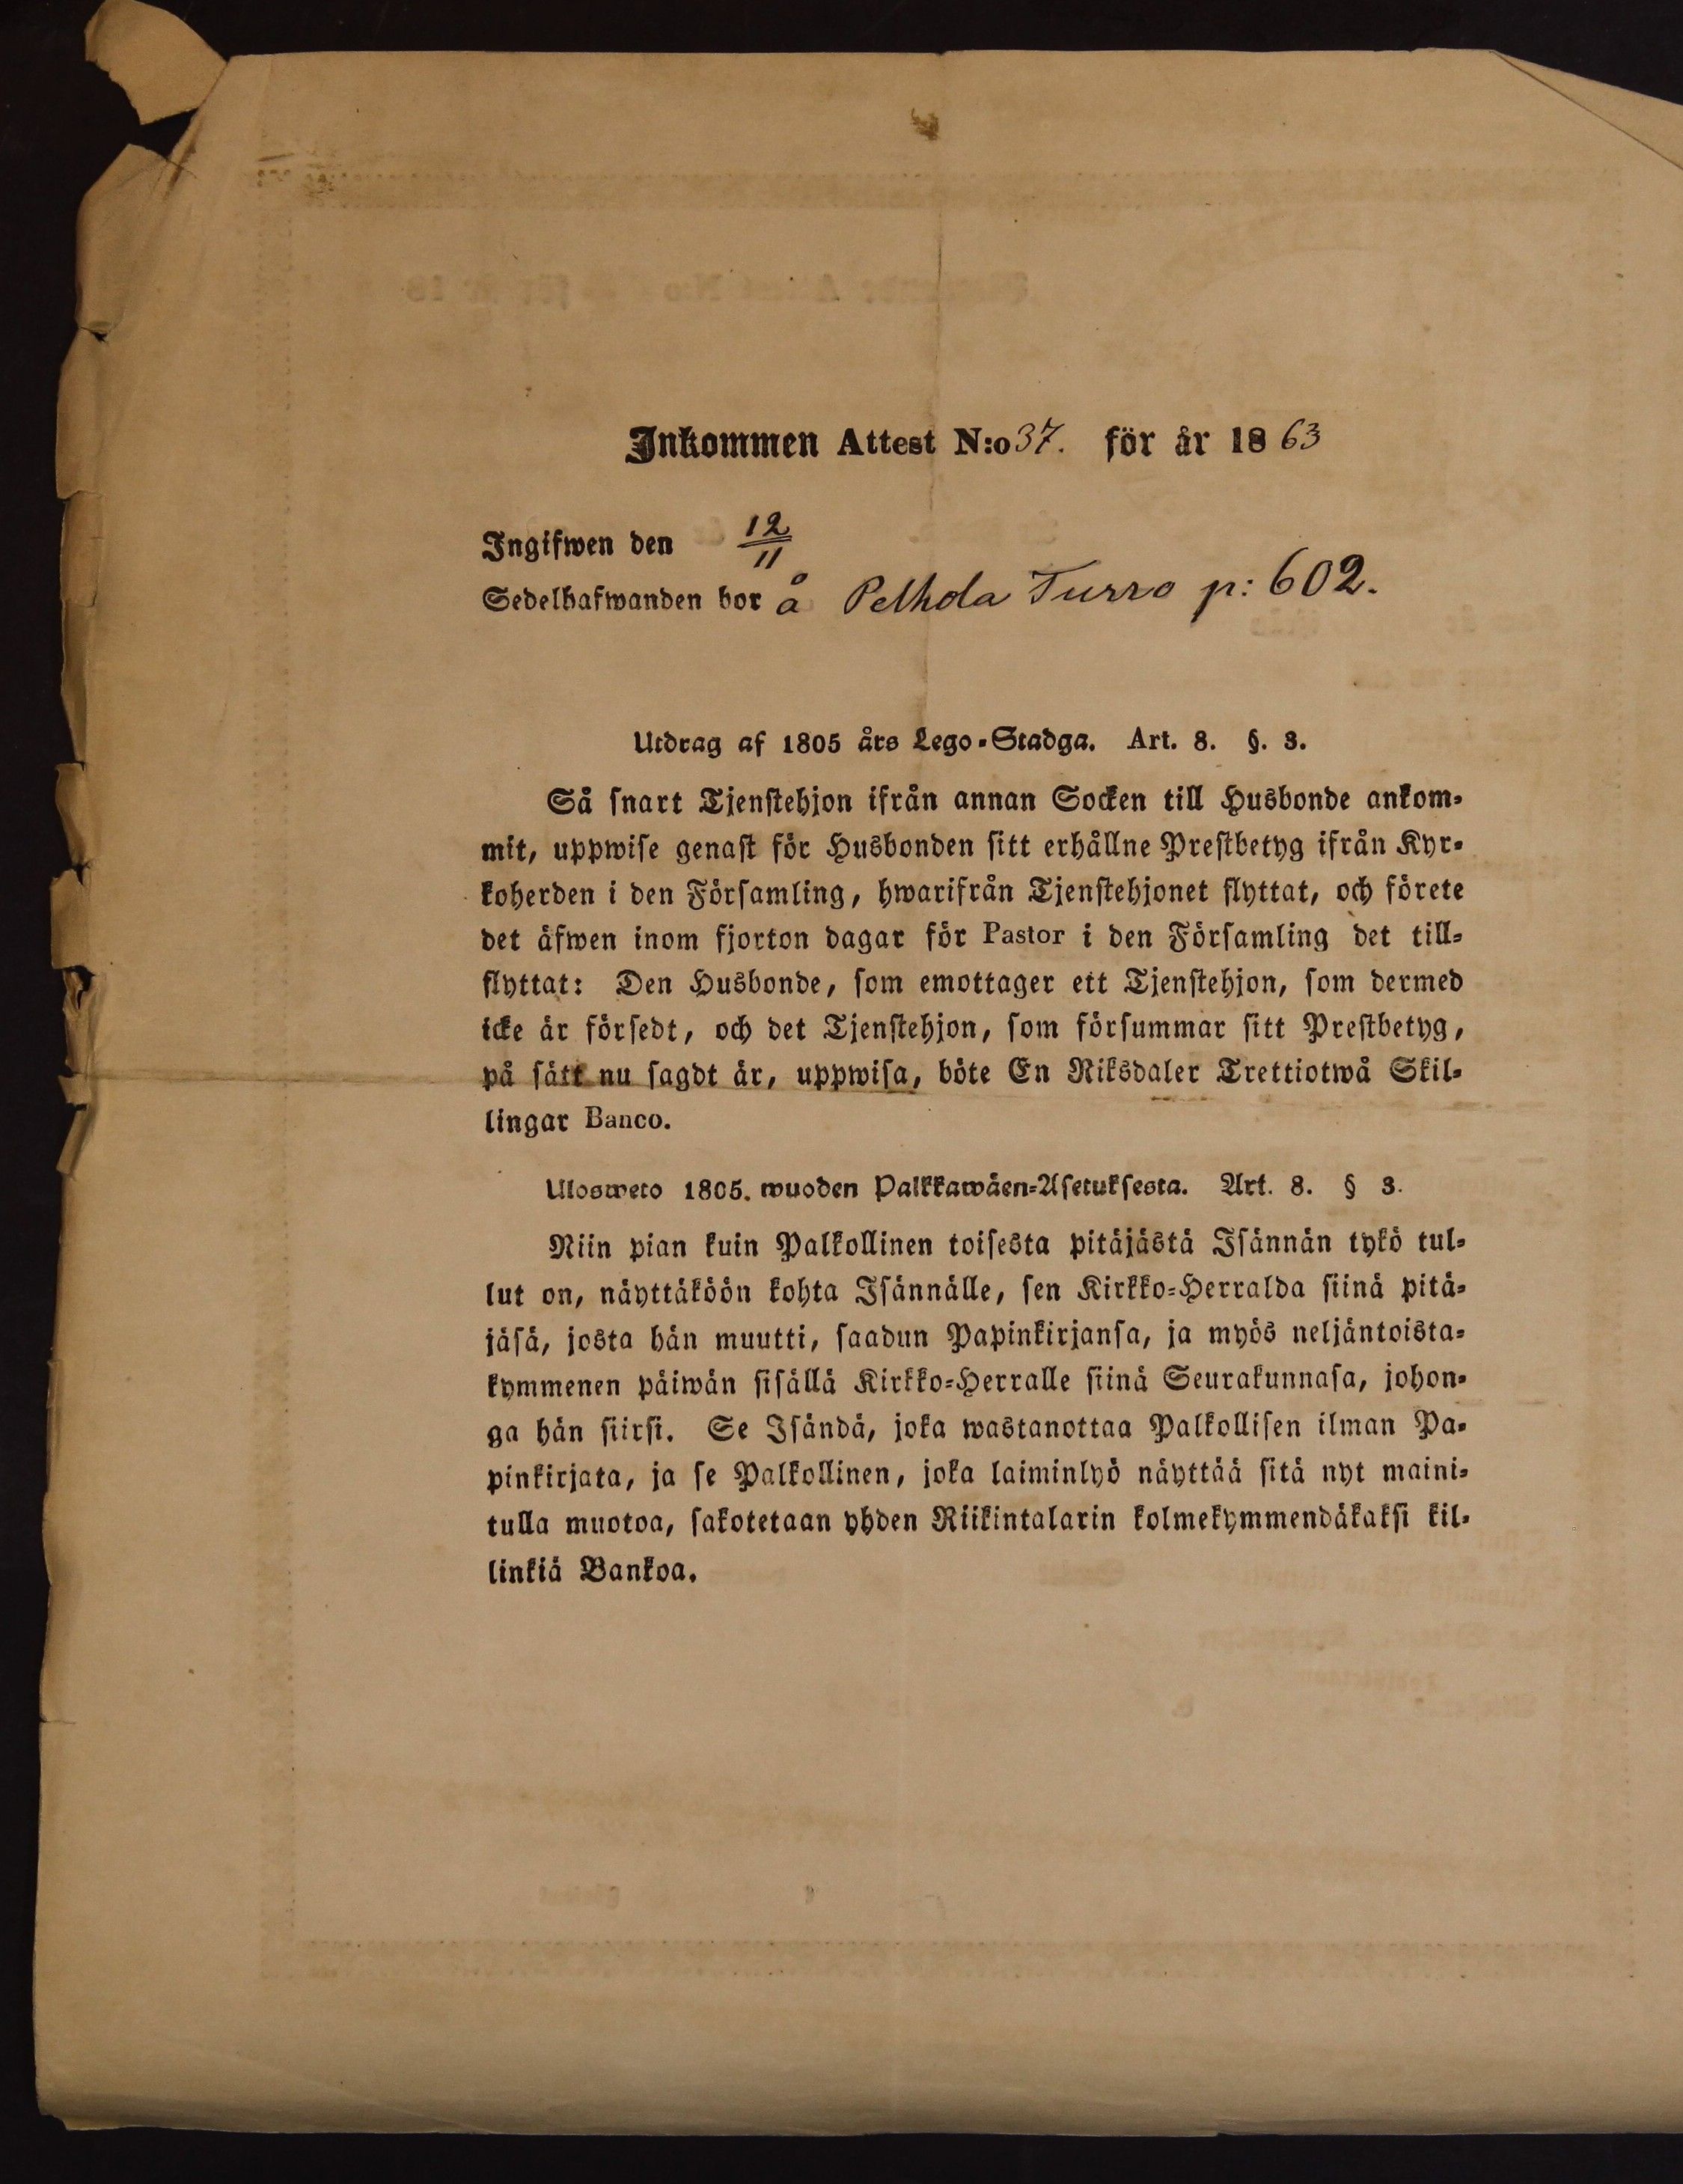 Inkommen Attest N:o 37. för år 1863
Ingifwen den 12/11
Sedelhafwanden bor å Pelhola Turro p: 602.
Utdrag af 1805 års Lego-Stadga. Art. 8. §. 3.
Så snart Tjenstehjon ifrån annan Socken till Husbonde ankom-
mit, uppwise genast för Husbonden sitt erhållne Prestbetyg ifrån Kyr-
koherden i den Församling, hwarifrån Tjenstehjonet flyttat, och förete
det äfwen inom fjorton dagar för Pastor i den Församling det till-
flyttat: Den Husbonde, som emottager ett Tjenstehjon, som dermed
icke är försedt, och det Tjenstehjon, som försummar sitt Prestbetyg,
på sätt nu sagdt är, uppwisa, böte En Riksdaler Trettiotwå Skil-
lingar Banco.
Ulosweto 1805. wuoden Palkkawäen-Asetuksesta. Art. 8. § 3.
Niin pian kuin Palkollinen toisesta pitäjästä Isännän tykö tul-
lut on, näyttäköön kohta Isännälle, sen Kirkko-Herralda siinä pitä-
jäsä, josta hän muutti, saadun Papinkirjansa, ja myös neljäntoista-
kymmenen päiwän sisällä Kirkko-Herralle siinä Seurakunnasa, johon-
ga hän siirsi. Se Isändä, joka wastanottaa Palkollisen ilman Pa-
pinkirjata, ja se Palkollinen, joka laiminlyö näyttää sitä nyt maini-
tulla muotoa, sakotetaan yhden Riikintalarin kolmekymmendäkaksi kil-
linkiä Bankoa.